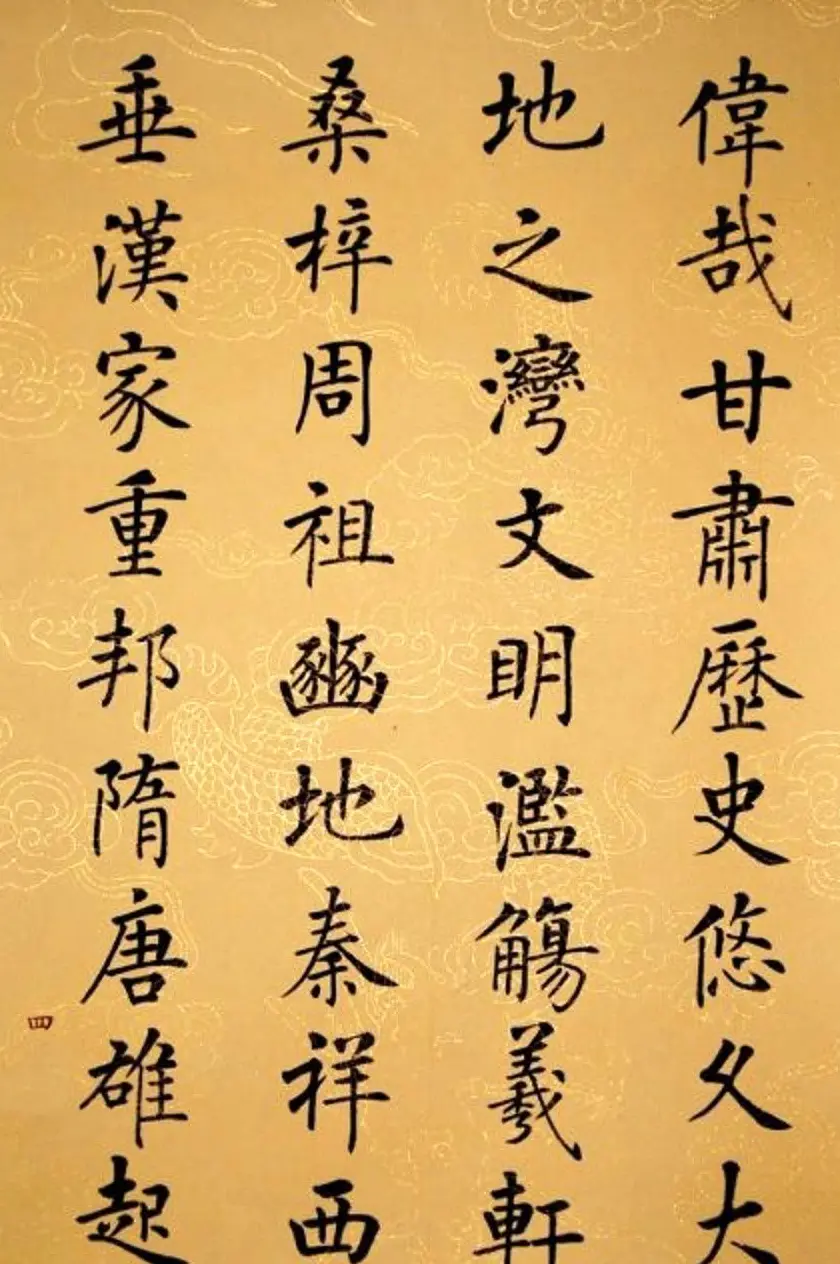 偉哉甘肅歷史悠久大
地之灣文明濫觴羲軒
桑梓周祖豳地秦祥西
垂漢家重邦隋唐雄起
四